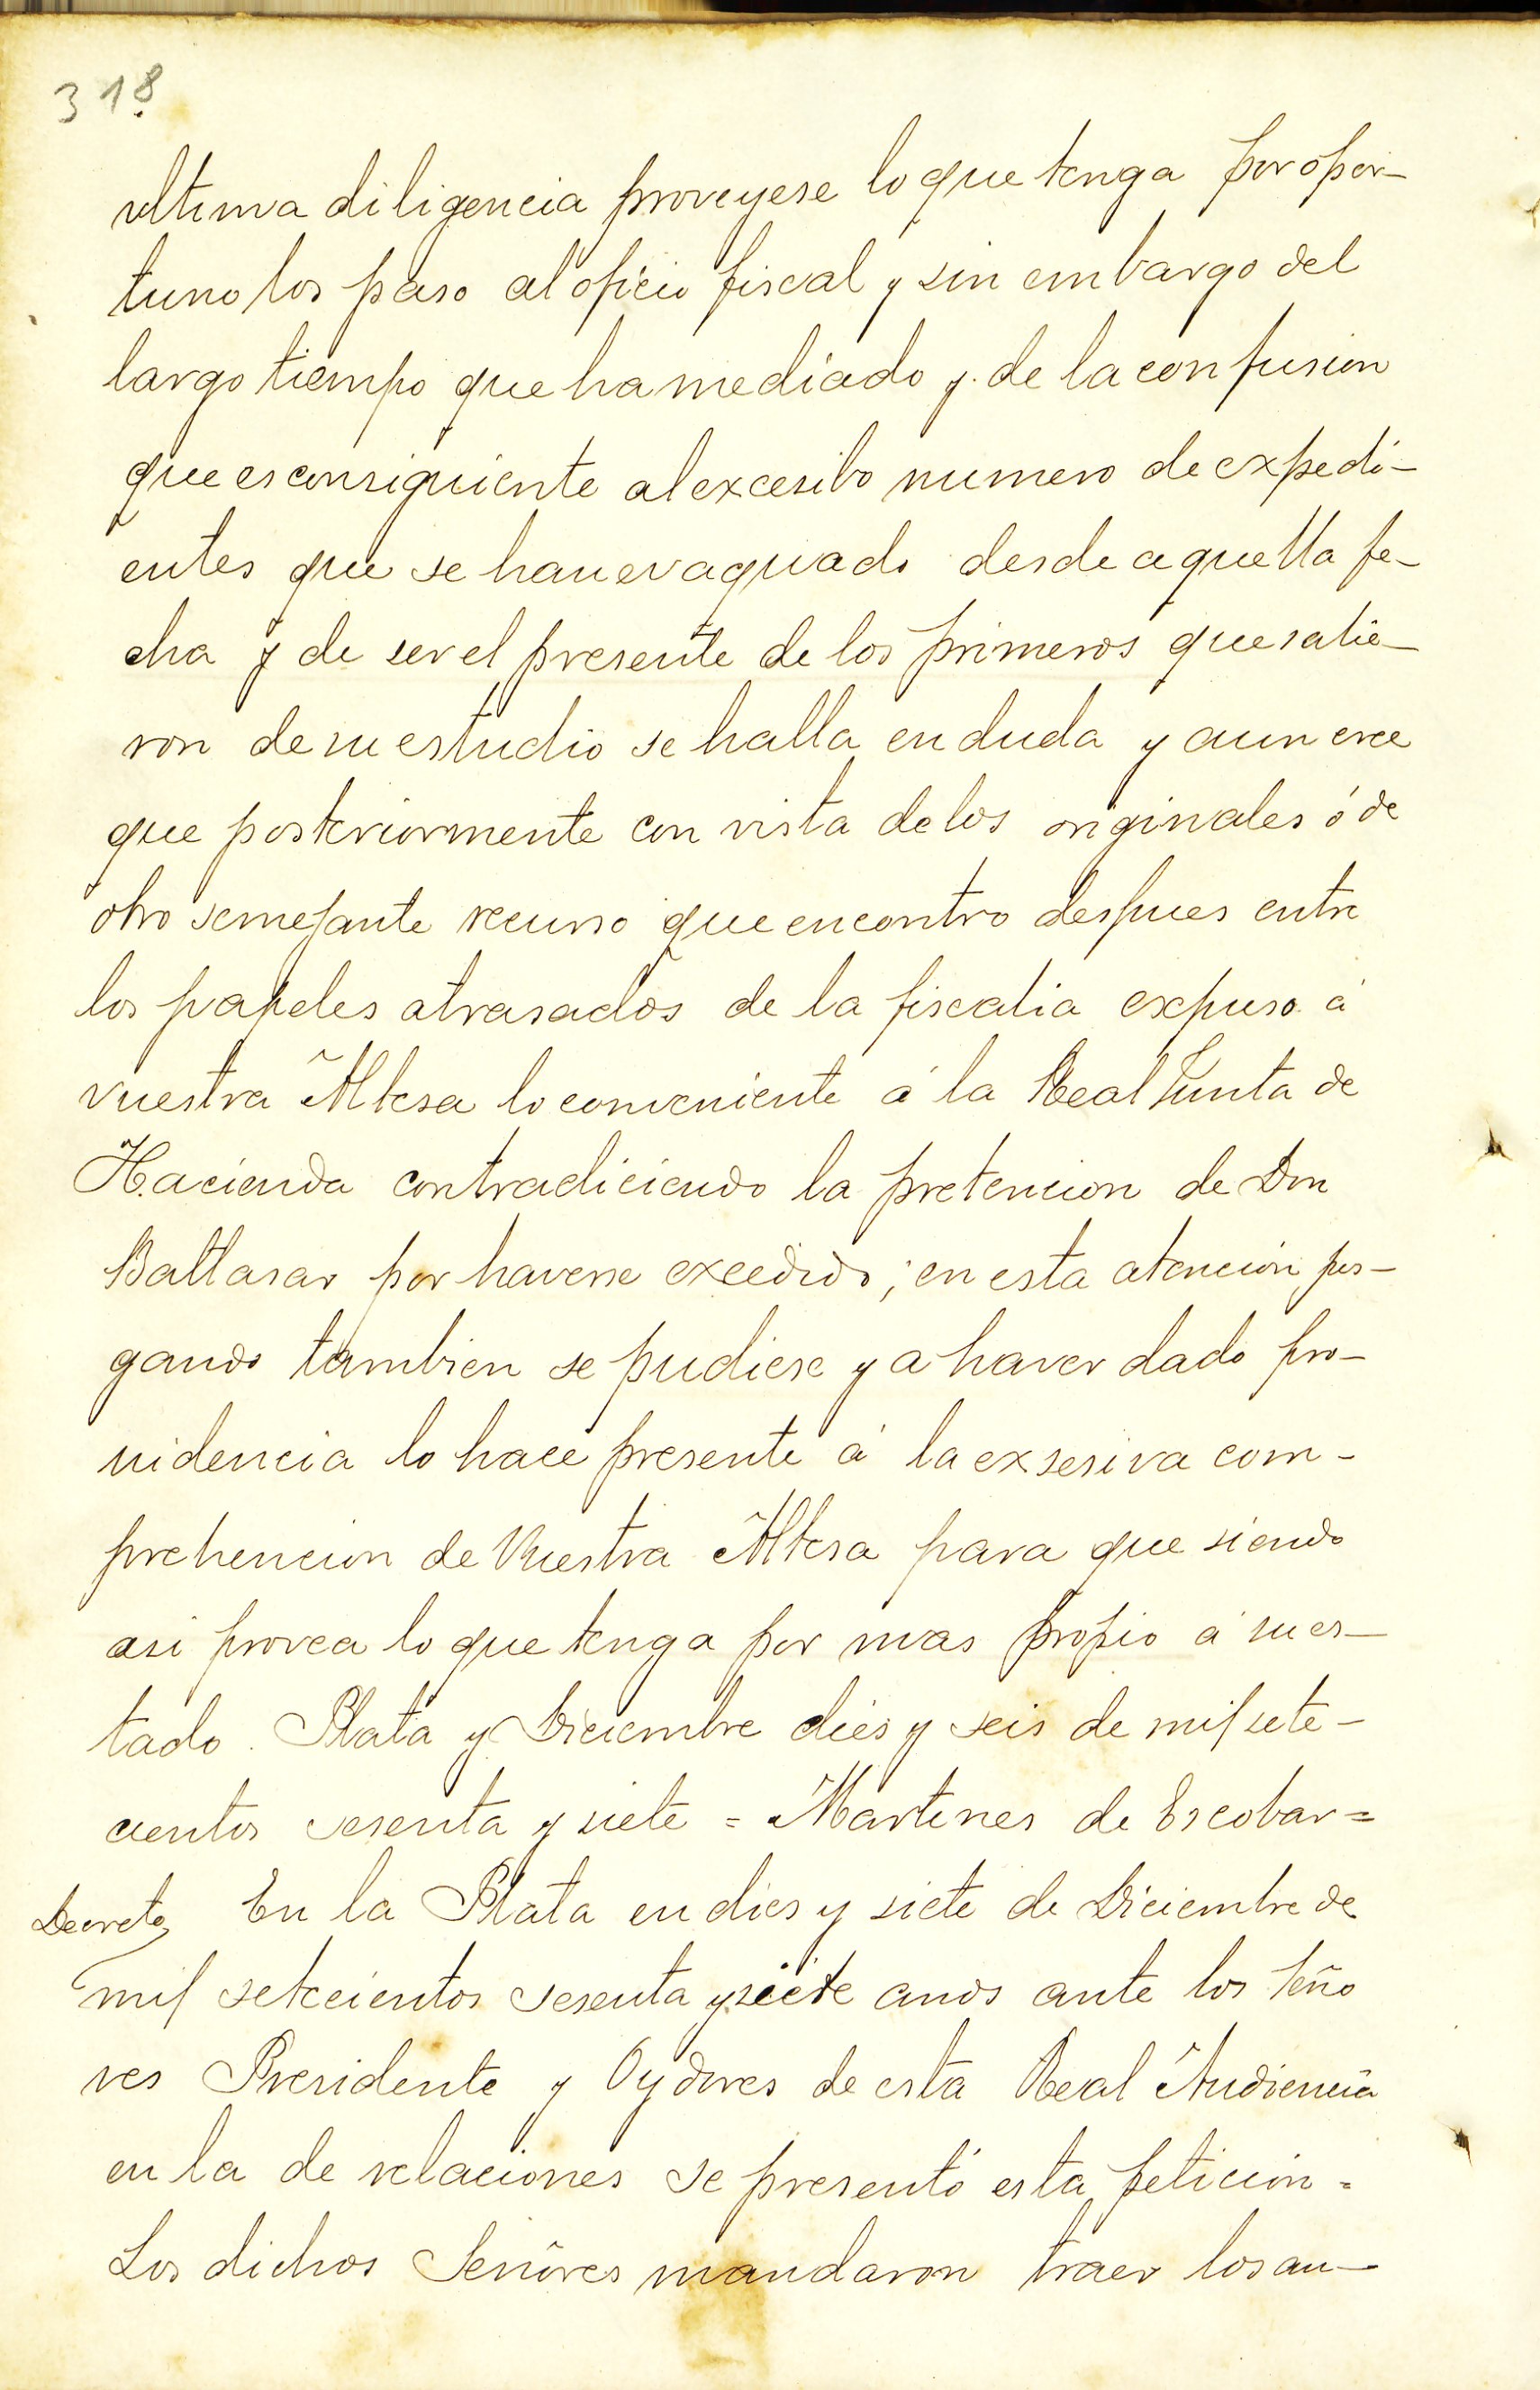 318
ultima diligencia proveyese lo que tenga por opor-
tuno los paso al oficio fiscal y sin embargo del
largo tiempo que ha mediado y de la confusion
que es consiguiente al excesibo numero de expedi-
entes que se han evaquado desde aquella fe-
cha y de ser el presente de los primeros que salie-
ron de su estudio se halla en duda y aun cree
que posteriormente con vista de los originales ó de
otro semejante recurso que encontro despues entre
los papeles atrasados de la fiscalia expuso á
vuestra Altesa lo conveniente á la Real Junta de
Hacienda contradiciendo la pretencion de Don
Baltasar por haverse exedido; en esta atencion jus-
gando tambien se pudiese ya haver dado pro-
videncia lo hace presente á la exsesiva com-
prehencion de Vuestra Altesa para que siendo
asi provea lo que tenga por mas propio á su es-
tado. Plata y Diciembre dies y seis de mil sete-
cientos sesenta y siete = Martines de Escobar =
Decreto En la Plata en dies y siete de Diciembre de
mil setecientos sesenta y siete anos ante los Seño
res Presidente y Oydores de esta Real Audiencia
en la de relaciones se presentó esta peticion =
Los dichos Señores mandaron traer los au-